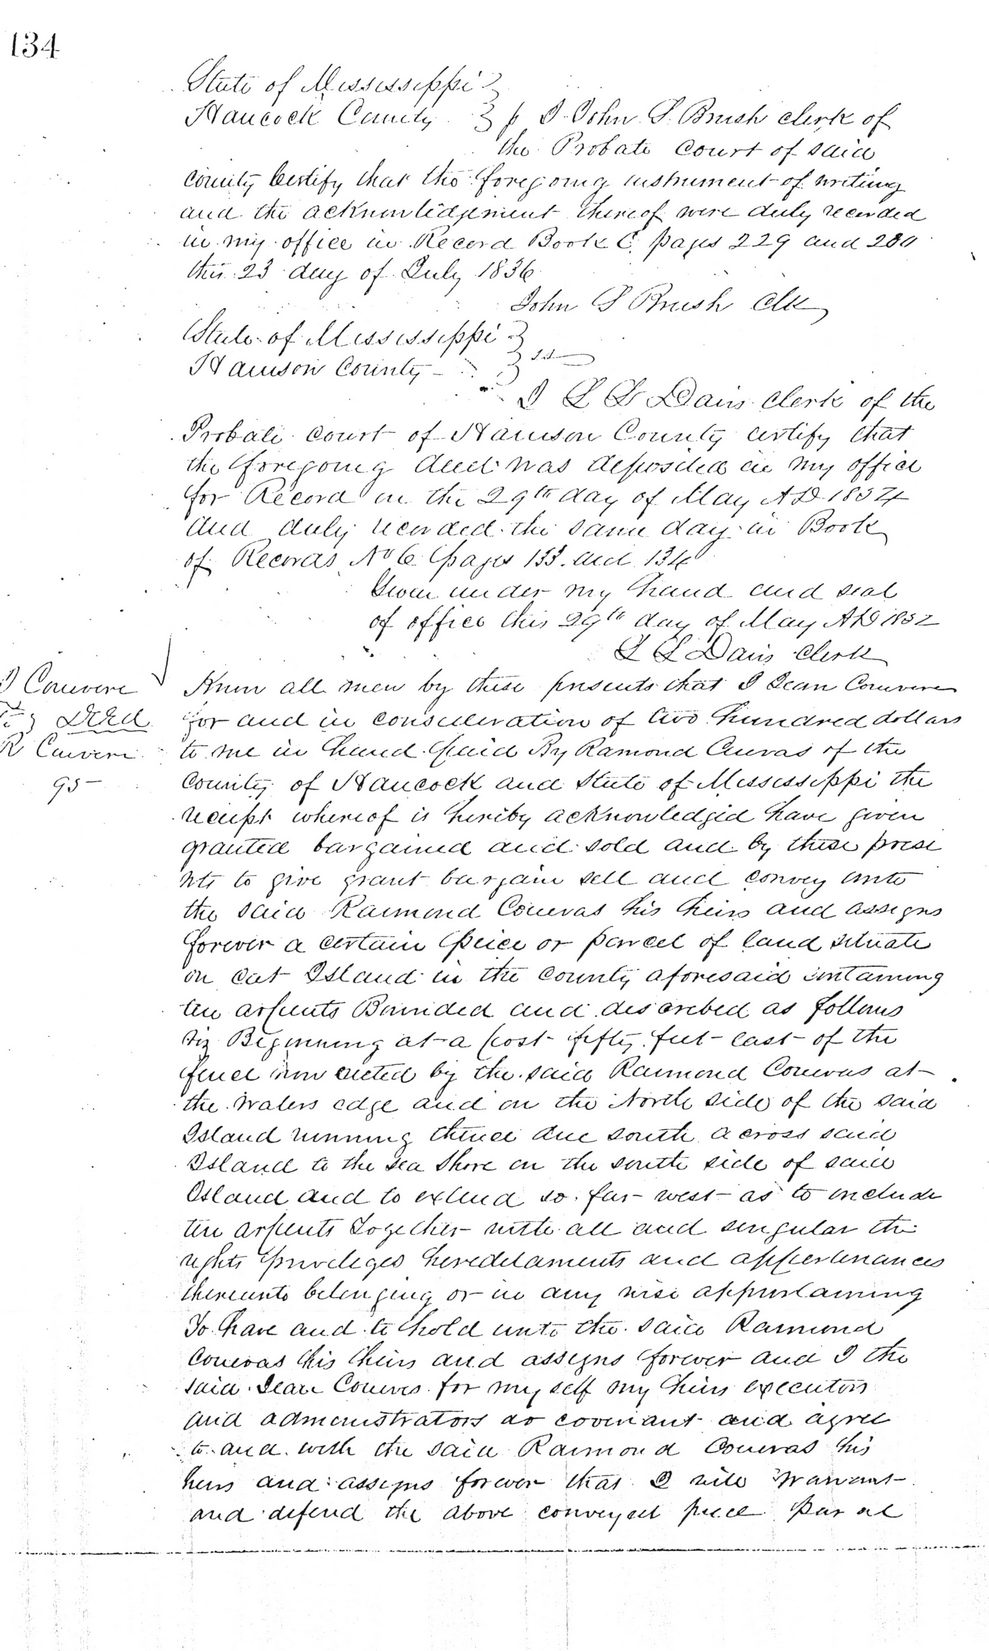 134
State of Mississippi
Hancock County } I John S Brush clerk of
the Probate Court of said
County Certify that the foregoing instrument of writing
and the acknowledgement thereof were duly recorded
in my office in Record Book C pages 229 and 230
this 23 day of July 1836
John S Brush Clk
State of Mississippi
Harrison County } ss
I L S Davis clerk of the
Probate court of Harrison County certify that
the foregoing deed was deposited in my office
for Record on the 29th day of May AD 1852
and duly recorded the same day in Book
of Records No 6 pages 133 and 134
Given under my hand and seal
of office this 29th day of May AD 1852
L S Davis clerk
J Couvere
To } Deed
R Couveri
95
Know all men by these presents that I Jean Couvere
for and in consideration of two hundred dollars
to me in hand paid By Ramond Cuevas of the
County of Hancock and State of Mississippi the
receipt whereof is hereby acknowledged have given
granted bargained and sold and by these prese
nts to give grant bargain sell and convey unto
the said Raimond Couevas his heirs and assigns
forever a certain peice or parcel of land situate
on Cat Island in the County aforesaid containing
ten arpents Bounded and described as follows
viz Beginning at a post fifty feet east of the
fence now erected by the said Raimond Couevas at
the waters edge and on the North side of the said
Island running thence due south across said
Island to the sea shore on the south side of said
Island and to extend so far west as to include
ten arpents Together with all and singular the
rights priveleges heredetaments and appertenances
thereunto belonging or in any wise appurtaining
To have and to hold unto the said Raimond
Couevas his heirs and assigns forever and I the
said Jean Coueves for myself my heirs executors
and administrators do covenant and agree
to and with the said Raimond Couevas his
heirs and assigns forever that I will warrant
and defend the above conveyed piece parcel